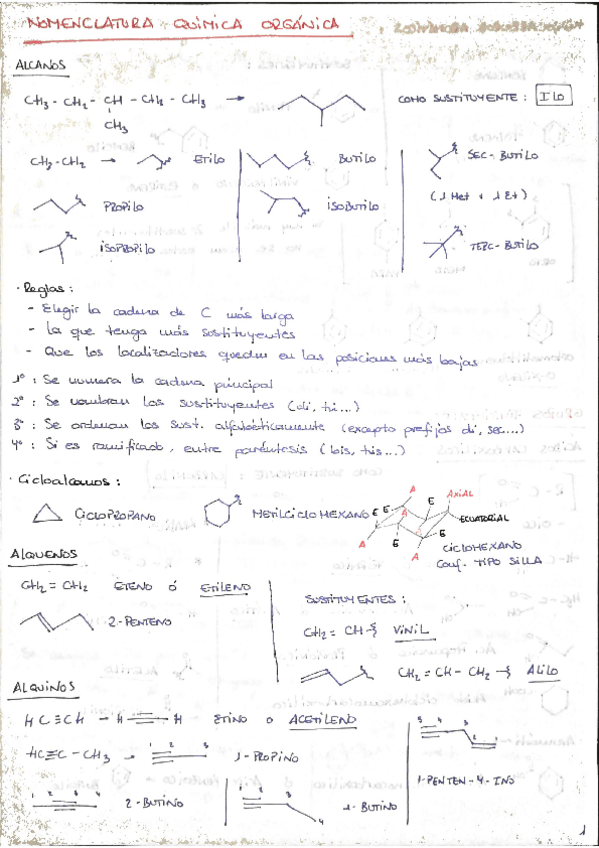 NOMENCLATURA QUÍMICA ORGÁNICA
ALCANOS
CH₃ - CH₂ - CH - CH₂ - CH₃ → COMO SUSTITUYENTE : ILO
CH₃
CH₃-CH₂ → ETILO BUTILO SEC-BUTILO
(1 Met + 1 Et)
PROPILO ISOBUTILO
ISOPROPILO TERC-BUTILO
· Reglas :
- Elegir la cadena de C más larga
- La que tenga más sustituyentes
- Que los localizadores queden en las posiciones más bajas
1º : Se numera la cadena principal
2º : Se nombran los sustituyentes (di, tri...)
3º : Se ordenan los sust. alfabéticamente (excepto prefijos di, sec...)
4º : Si es ramificado, entre paréntesis (bis, tris...)
· Cicloalcanos :
CICLOPROPANO METILCICLOHEXANO
A E AXIAL
E E A ECUATORIAL
A E E
A
CICLOHEXANO
CONF. TIPO SILLA
ALQUENOS
CH₂ = CH₂ ETENO Ó ETILENO
2-PENTENO
SUSTITUYENTES :
CH₂ = CH-ξ VINIL
CH₂ = CH - CH₂ -ξ ALILO
ALQUINOS
HC≡CH - H≡H ETINO O ACETILENO
HC≡C - CH₃ → 1 2 3 1-PROPINO
1 2 3 4 2-BUTINO
1 2 3 4 1-BUTINO
5 4 3 2 1
1-PENTEN-4-INO
1